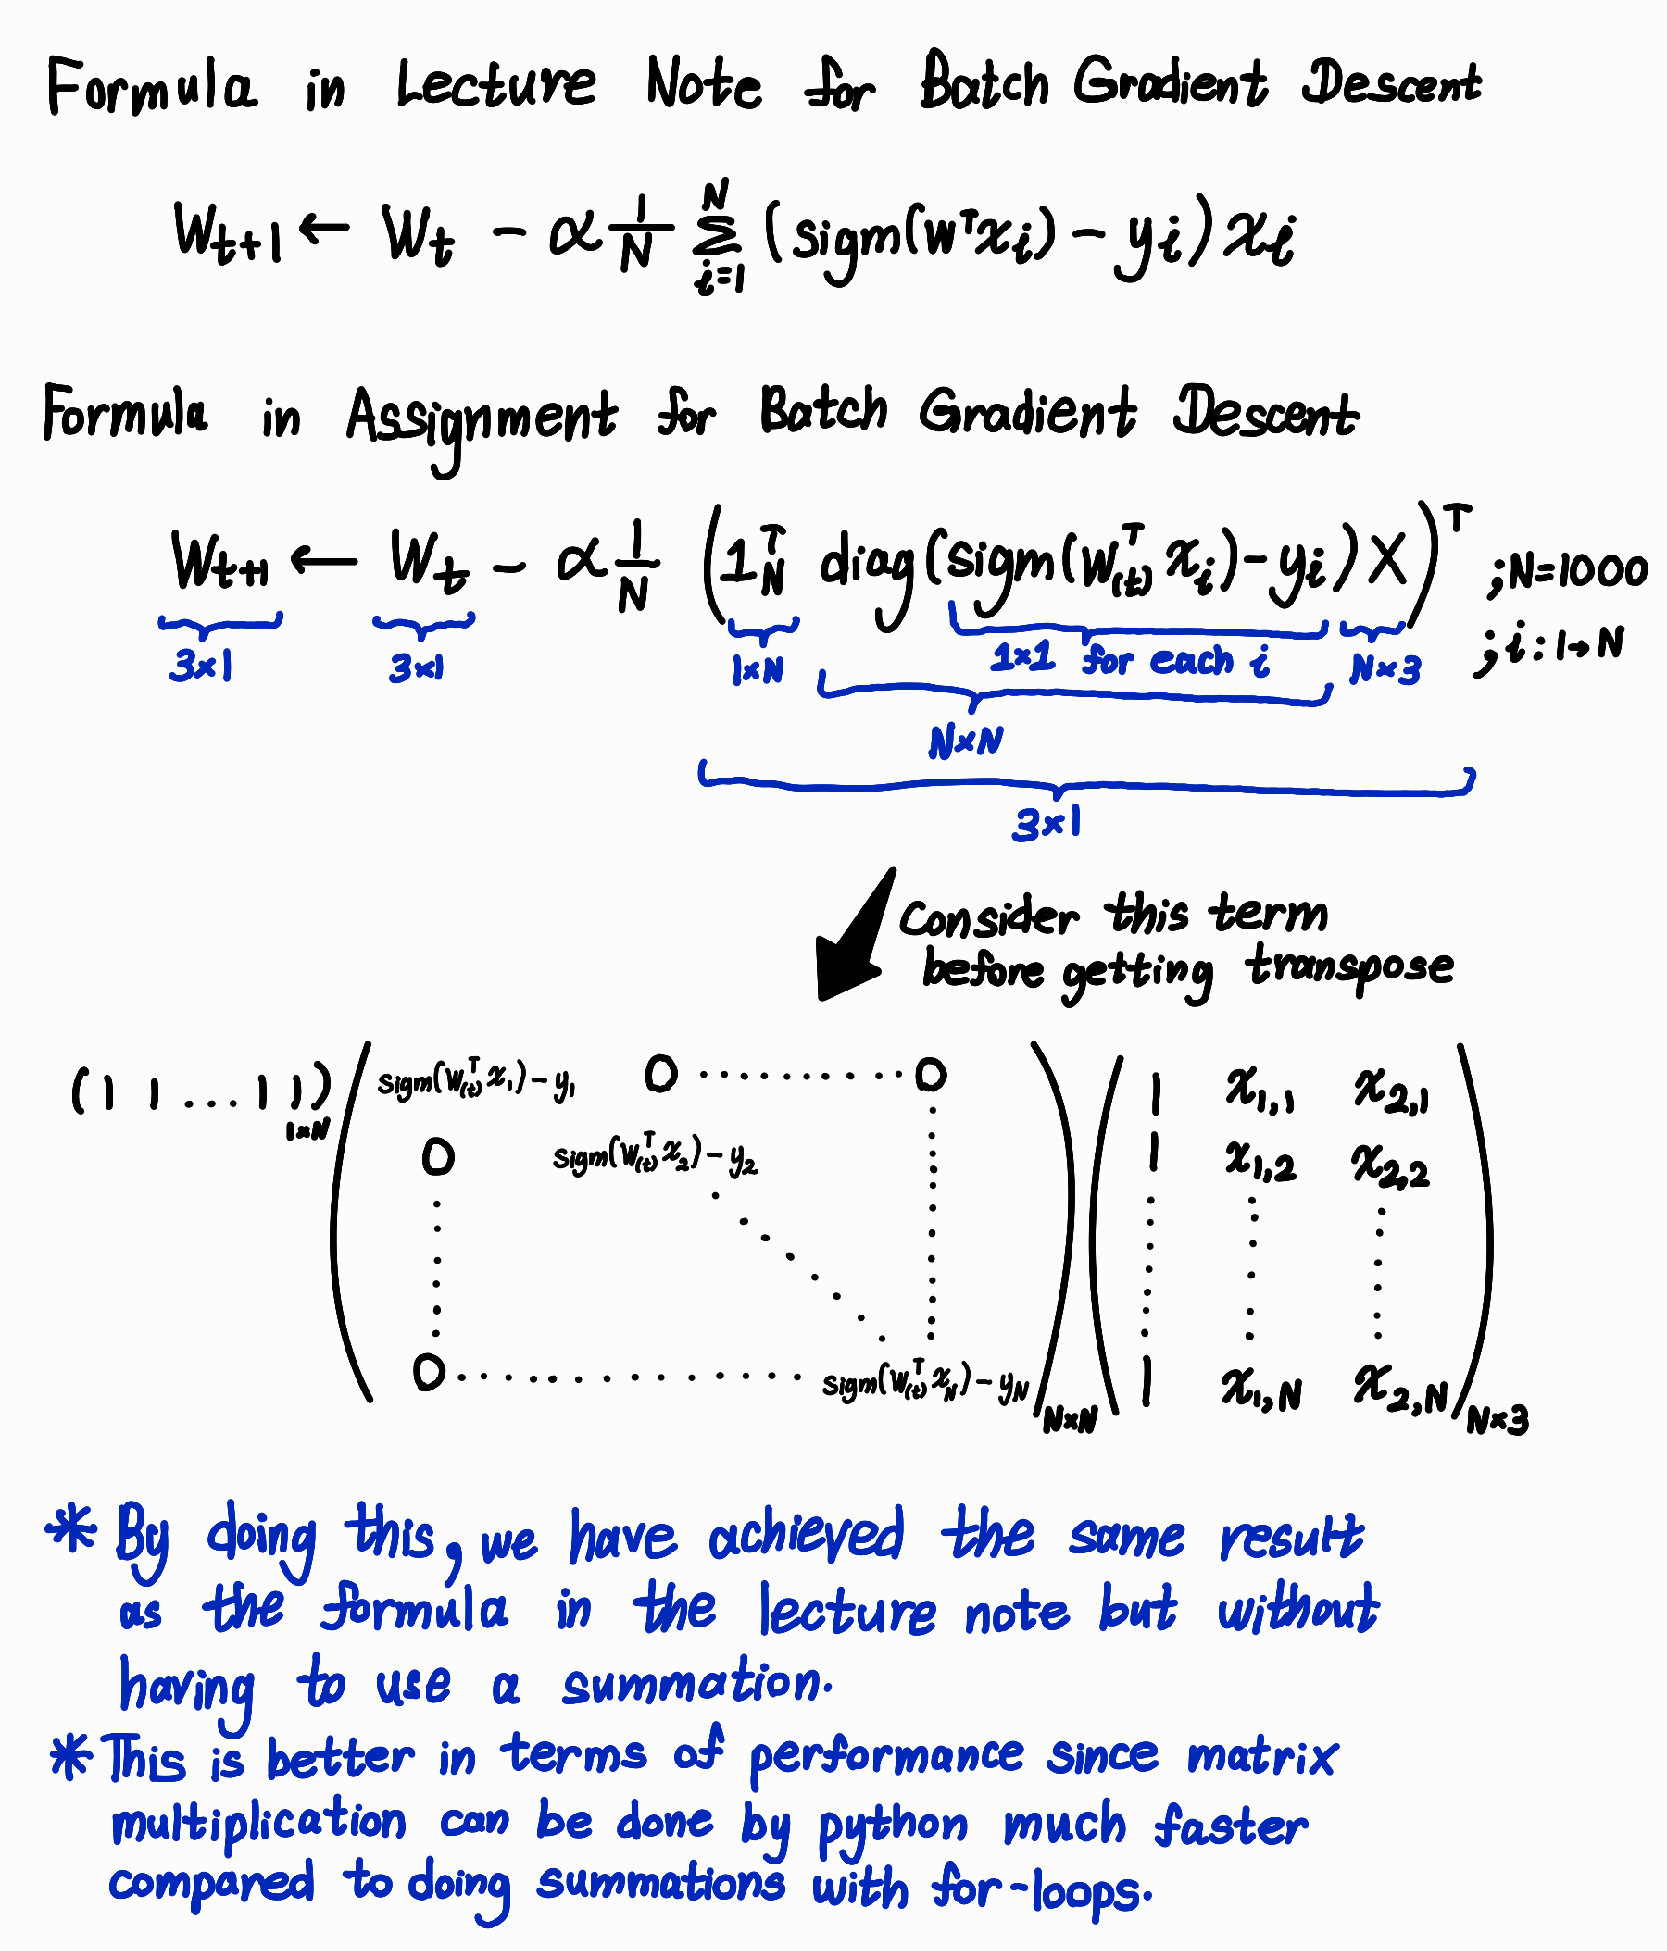 Formula in Lecture Note for Batch Gradient Descent
W_{t+1} ← W_t - α 1/N Σ_{i=1}^{N} (sigm(W^T x_i) - y_i) x_i
Formula in Assignment for Batch Gradient Descent
W_{t+1} ← W_t - α 1/N (1_N^T diag(sigm(W_{(t)}^T x_i) - y_i) X)^T ; N=1000
3×1 3×1 1×N 1×1 for each i N×3 ; i : 1→N
N×N
3×1
Consider this term
before getting transpose
(1 1 ... 1 1)_{1×N} ( sigm(W_{(t)}^T x_1) - y_1 0 ........ 0 ) ( 1 x_{1,1} x_{2,1} )
0 sigm(W_{(t)}^T x_2) - y_2 1 x_{1,2} x_{2,2}
0 ............ sigm(W_{(t)}^T x_N) - y_N )_{N×N} 1 x_{1,N} x_{2,N} )_{N×3}
* By doing this, we have achieved the same result
as the formula in the lecture note but without
having to use a summation.
* This is better in terms of performance since matrix
multiplication can be done by python much faster
compared to doing summations with for-loops.